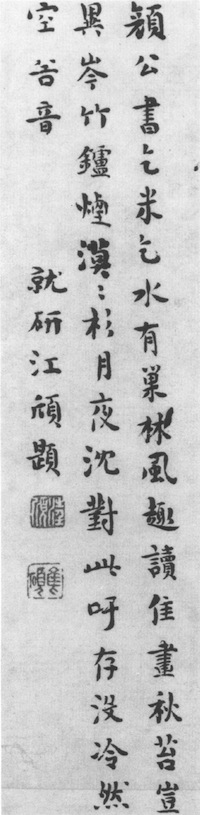 顏公書乞米乞水有巢林風趣讀佳畫秋苔豈
異岑竹鑪煙漠〻杉月夜沈對此吁存没冷然
空苦音
就研江頎題